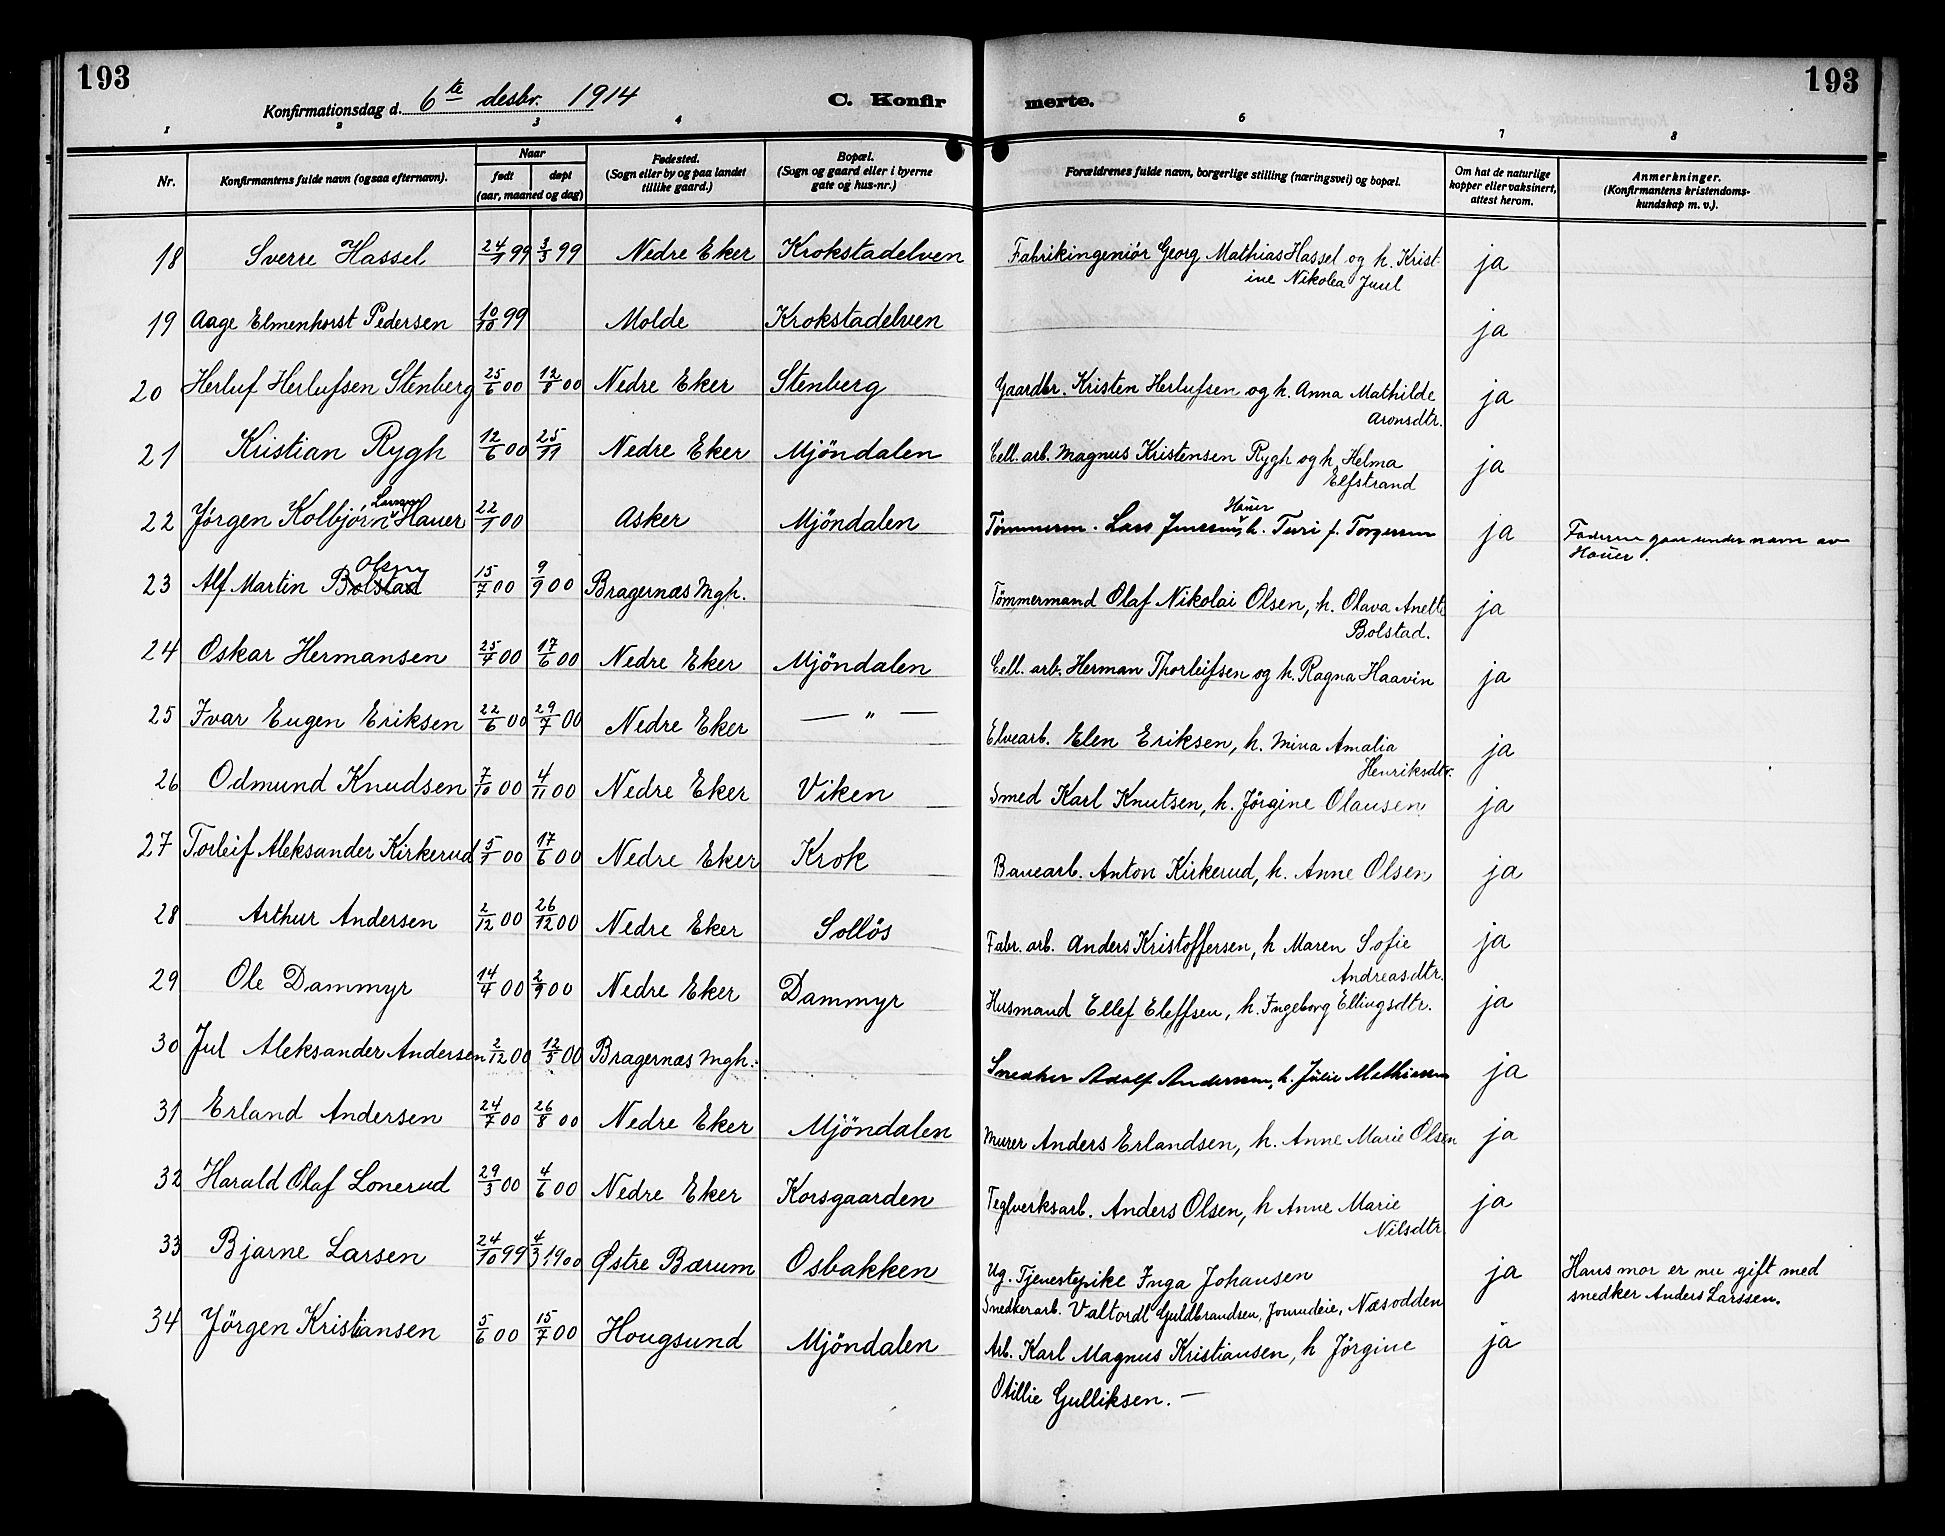 193
Konfirmationsdag d. 6te desbr. 1914
C. Konfir merte.
193
1 2 3 4 6 7 8
Nr.
Konfirmantens fulde navn (ogsaa efternavn).
Naar
født
døpt
(aar, maaned og dag)
Fødested.
(Sogn eller by og paa landet
tillike gaard.)
Bopæl.
(Sogn og gaard eller i byerne
gate og hus-nr.)
Forældrenes fulde navn, borgerlige stilling (næringsvei) og bopæl.
Om hat de naturlige
kopper eller vaksinert,
attest herom.
Anmerkninger.
(Konfirmantens kristendoms-
kundskap m. v.).
18 Sverre Hassel 24/1 99 3/3 99 Nedre Eker Krokstadelven Fabrikingeniör Georg Mathias Hassel og h. Krist- ja
ine Nikolea Juul
19 Aage Elmenhorst Pedersen 10/10 99 Molde Krokstadelven ja
20 Herluf Herlufsen Stenberg 25/6 00 12/8 00 Nedre Eker Stenberg Gaardbr. Kristen Herlufsen og h. Anna Mathilde ja
Aronsdtr.
21 Kristian Rygh 12/6 00 25/11 Nedre Eker Mjöndalen Cell. arb. Magnus Kristensen Rygh og h. Helma ja
Elfstrand
22 Jørgen Kolbjørn Hauer 22/1 00 Asker Mjöndalen Tømmerm. Lars Jensen Hauer, h. Turi f. Torgersen ja Faderen gaar under navn av
Hauer.
23 Alf Martin Bolstad Olsen 15/7 00 9/9 00 Bragernæs Mgh. Tömmermand Olaf Nikolai Olsen, h. Olava Anette ja
Bolstad.
24 Oskar Hermansen 25/4 00 17/6 00 Nedre Eker Mjöndalen Cell. arb. Herman Thorleifsen og h. Ragna Haavin ja
25 Ivar Eugen Eriksen 22/6 00 29/7 00 Nedre Eker — " — Elvearb. Elen Eriksen, h. Mina Amalia ja
Henriksdtr.
26 Odmund Knudsen 7/10 00 4/11 00 Nedre Eker Viken Smed Karl Knutsen, h. Jörgine Olausen ja
27 Torleif Aleksander Kirkerud 5/1 00 17/6 00 Nedre Eker Krok Banearb. Anton Kirkerud, h. Anne Olsen ja
28 Arthur Andersen 2/12 00 26/12 00 Nedre Eker Sollös Fabr. arb. Anders Kristoffersen, h Maren Sofie ja
Andreasdtr.
29 Ole Dammyr 14/4 00 2/9 00 Nedre Eker Dammyr Husmand Ellef Eleffsen, h. Ingeborg Ellingsdtr. ja
30 Jul Aleksander Andersen 2/12 00 12/5 00 Bragernæs Mgh. Snedker Adolf Andersen, h. Julie Mathisen ja
31 Erland Andersen 24/7 00 26/8 00 Nedre Eker Mjöndalen Murer Anders Erlandsen, h. Anne Marie Olsen ja
32 Harald Olaf Lonerud 29/3 00 4/6 00 Nedre Eker Korsgaarden Teglverksarb. Anders Olsen, h Anne Marie ja
Nilsdtr.
33 Bjarne Larsen 24/10 99 4/3 1900 Østre Bærum Osbakken Ug. Tjenestepike Inga Johansen ja Hans mor er nu gift med
Snedkerarb. Guldbrandsen, Næsodden snedker Anders Larssen.
34 Jörgen Kristiansen 5/6 00 15/7 00 Hougsund Mjöndalen Arb. Karl Magnus Kristiansen, h Jörgine ja
Otillie Gulliksen. —